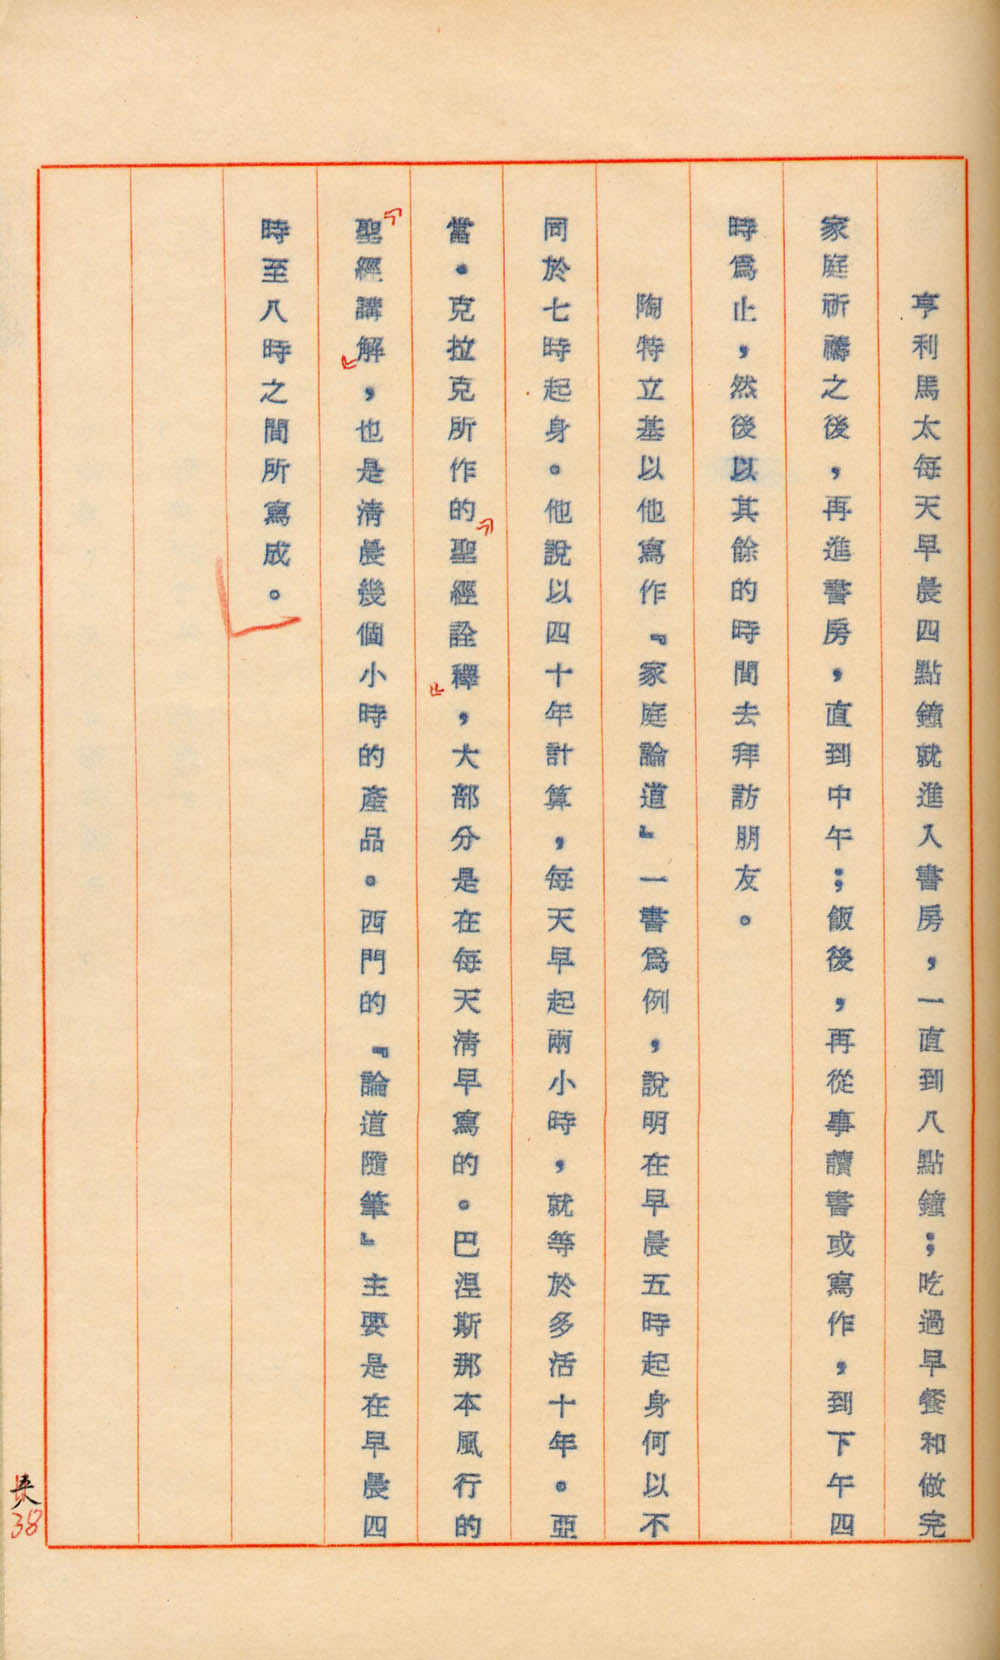 亨利馬太每天早晨四點鐘就進入書房，一直到八點鐘；吃過早餐和做完
家庭祈禱之後，再進書房，直到中午；飯後，再從事讀書或寫作，到下午四
時爲止，然後以其餘的時間去拜訪朋友。
陶特立基以他寫作『家庭論道』一書爲例，說明在早晨五時起身何以不
同於七時起身。他說以四十年計算，每天早起兩小時，就等於多活十年。亞
當・克拉克所作的『聖經詮釋』，大部分是在每天清早寫的。巴涅斯那本風行的
『聖經講解』，也是清晨幾個小時的產品。西門的『論道隨筆』主要是在早晨四
時至八時之間所寫成。
38